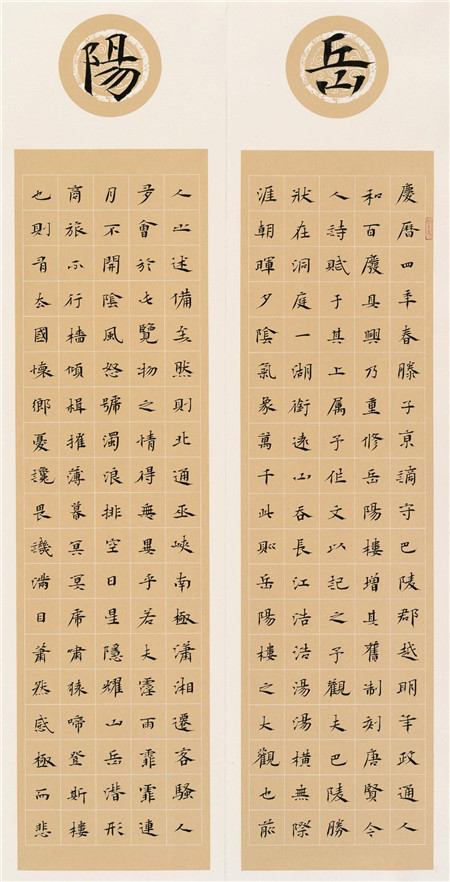 岳
陽
慶曆四年春滕子京謫守巴陵郡越明年政通人
和百廢具興乃重修岳陽樓增其舊制刻唐賢令
人詩賦于其上属予作文以記之予觀夫巴陵勝
狀在洞庭一湖銜遠山吞長江浩浩湯湯橫無際
涯朝暉夕陰氣象萬千此則岳陽樓之大觀也前
人之述備矣然則北通巫峽南極瀟湘遷客騷人
多會於此覽物之情得無異乎若夫霪雨霏霏連
月不開陰風怒號濁浪排空日星隱耀山岳潛形
商旅不行檣傾楫摧薄暮冥冥虎嘯猿啼登斯樓
也則有去國懷鄉憂讒畏譏滿目蕭然感極而悲